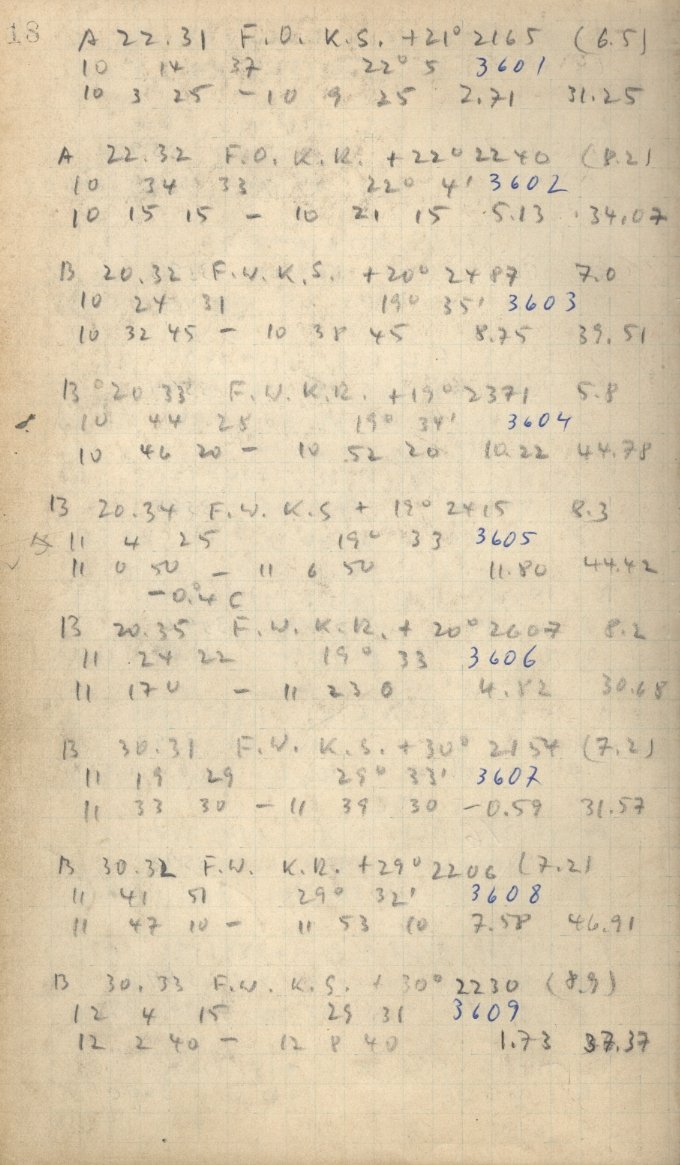 18
A 22.31 F.O. K.S. +21° 2165 (6.5)
10 14 37 22° 5 3601
10 3 25 - 10 9 25 2.71 31.25
A 22.32 F.O. K.R. +22° 2240 (8.2)
10 34 33 22° 4' 3602
10 15 15 - 10 21 15 5.13 34.07
B 20.32 F.W. K.S. +20° 2487 7.0
10 24 31 19° 35' 3603
10 32 45 - 10 38 45 8.75 39.51
B 20 33 F.W. K.R. +19° 2371 5.8
10 44 28 19° 34' 3604
10 46 20 - 10 52 20 10.22 44.78
B 20.34 F.W. K.S + 19° 2415 8.3
11 4 25 19° 33 3605
11 0 50 - 11 6 50 11.80 44.42
-0.°4 C
B 20.35 F.W. K.R. + 20° 2607 8.2
11 24 22 19° 33 3606
11 17 0 - 11 23 0 4.82 30.68
B 30.31 F.W. K.S. +30° 2154 (7.2)
11 19 29 29° 33' 3607
11 33 30 - 11 39 30 -0.59 31.57
B 30.32 F.W. K.R. +29° 2206 (7.2)
11 41 51 29° 32' 3608
11 47 10 - 11 53 10 7.58 46.91
B 30.33 F.W. K.S. + 30° 2230 (8.9)
12 4 15 29 31 3609
12 2 40 - 12 8 40 1.73 37.37